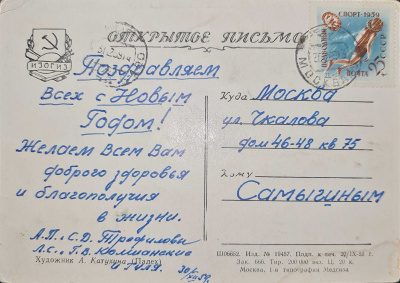 ОТКРЫТОЕ ПИСЬМО
ИЗОГИЗ
СПОРТ-1959
ПОЧТА
СССР
25
МОСКВА
Поздравляем
Всех с Новым
Годом!
Желаем Всем Вам
доброго здоровья
и благополучия
в жизни.
А.П., С.Д. Трофиловы
Л.С., Г.В.
и Галя.
Куда Москва
ул. Чкалова
дом 46-48 кв 75
Кому
Самыгиным
Художник А. Катухина (Палех)
Изд. № 19457. Подп. к печ.
Зак. 666. Тир. 200 000 экз. Ц. 20 к.
Москва, 1-я типография Медгиза